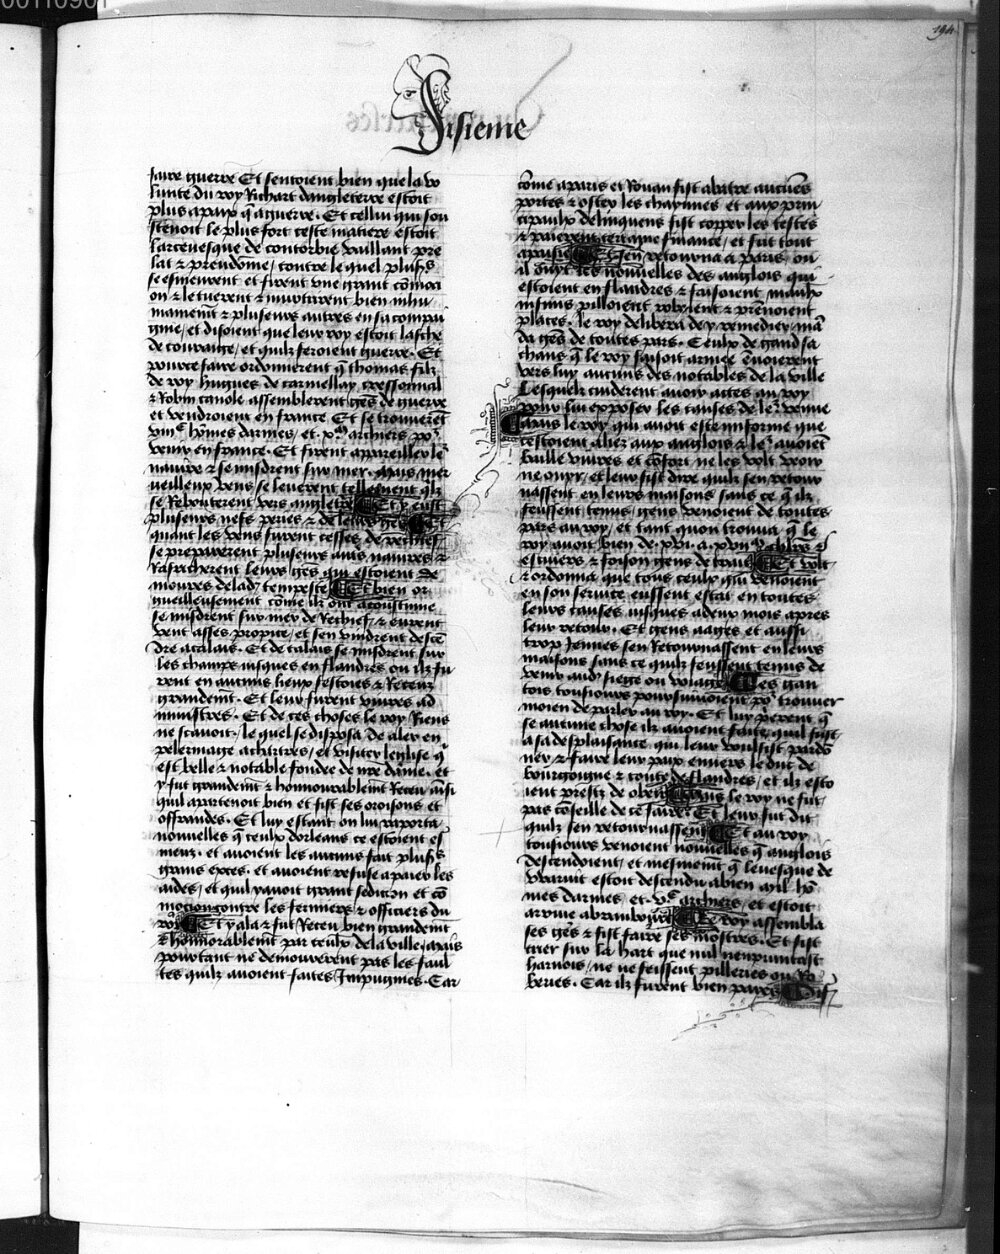 194
Sisieme
faire guerre Et sentoient bien que la vo
lunte du roy Richart dangleterre estoit
plus a paix q̄ a guerre. Et cellui qui sou
stenoit le plus fort ceste matiere estoit
larcevesque de contorbie vaillant pre
lat ⁊ preudōme / contre le quel plus̄s
se esmeurent et firent une grant cōmoci
on ⁊ le tuerent ⁊ murtrirent bien inhu
mainemt̄ ⁊ plusieurs autres en sa compai
gnie / et disoient que leur roy estoit lasche
de couraige / et quilz feroient guerre. Et
pour ce faire ordonnerent q̄ thomas filz
de roy hugues de carmellay cressonnal
⁊ Robin canole assemblerent gēs de guerre
et vendroient en france Et se trouverēt
viijᶜ hōmes darmes / et xᵐ archiers poʳ
venir en france. Et firent appareiller leʳ
navire ⁊ se misdrent sur mer. Mais mer
veilleux vens se leverent tellement q̄lz
se Rebouterent vers angleterre Et y eust
plusieurs nefs peries ⁊ de leurs gēs Et
quant les vens furent cesses de
se preparerent plusieurs aut̄s navires ⁊
Raffrecherent leurs gēs qui estoient de
moures de lad̄ tempeste Et bien or
gueilleusement cōme ilz ont acoustume
se misdrent sur mer de Rechief / ⁊ eurent
vent asses propice / et sen vindrent descē
dre a calais. Et de calais se misdrent sur
les champs jusques en flandres ou ilz fu
rent en aucuns lieux festoies ⁊ Receuz
grandemt̄. Et leur furent vivres ad
ministres. Et de ces choses le roy Riens
ne scavoit / le quel se disposa de aler en
pelerinage a chartres / et visiter leglise q̄
est belle ⁊ notable fondee de nr̄e dame. et
y fut grandemt̄ ⁊ honnourablemt̄ Receu ainsi
quil apartenoit bien et fist ses oroisons et
offrandes. Et luy estant on lui raporta
nouvelles q̄ ceulx dorleans ce estoient es
meuz. et avoient les aucuns fait plus̄s
grans exces. et avoient refuse a paier les
aides / et quil y avoit grant sedicion et cō
mocion contre les fermiers ⁊ officiers du
roy Et y ala ⁊ fut Receu bien grandemt̄
⁊ honnorablemt̄ par ceulx de la ville / mais
pourtant ne demourerent pas les faul
tes quilz avoient faites Impugnies. Car
cōme a paris et Rouan fist abatre aucunes
portes ⁊ oster les chaynnes et aux prin
cipaulx delinquens fist copper les testes
⁊ paierent finance / et fut tout
apaisie Et sen retourna a paris / ou
il ouyt les nouvelles des anglois qui
estoient en flandres ⁊ faisoient maulx
infinis pilloient roboient ⁊ prenoient
places. le roy delibera de y remedier mā
da gēs de toutes pars. Ceulx de gand sa
chans q̄ le roy faisoit armee envoierent
vers luy aucuns des notables de la ville
Lesquelz cuiderent avoir acces au roy
pour lui exposer les causes de leʳ venue
Mais le roy qui avoit este informe que
cestoient aliez aux anglois ⁊ leʳ avoiēt
baille vivres et cōfort ne les volt veoir
ne ouyr / et leur fist dire quilz sen retour
nassent en leurs maisons sans ce q̄ ilz
feussent tenuz / gens venoient de toutes
pars au roy / et tant quon trouva q̄ le
roy avoit bien de xvi a xviiᵐ chl̄rs ⁊
escuiers ⁊ foison gens de trait Et volt
⁊ ordonna que tous ceulx qui venoient
en son service eussent estat en toutes
leurs causes jusques a deux mois apres
leur retour. Et gens aages et aussi
trop jeunes sen Retournassent en leurs
maisons sans ce quilz feussent tenus de
venir aud̄ siege ou voiage Les gan
tois tousiours poursuivoient poʳ trouver
moien de parler au roy. Et luy q̄
se aucune chose ilz avoient faite quil fust
a sa desplaisance qui leur voulsist pardō
ner / ⁊ faire leur paix envers le duc de
bourgoigne ⁊ conte de flandres / et ilz esto
ient prestz de obeir Mais le roy ne fut
pas cōseille de ce faire. Et leur fut dit
quilz sen retournassent Et au roy
tousiours venoient nouvelles q̄ anglois
descendoient / et mesmemt̄ q̄ levesque de
estoit descendu a bien hō
mes darmes / et vᶜ archiers / et estoit
arrive Le roy assembla
ses gēs ⁊ fist faire ses mōstres. Et fist
crier sur la hart que nul nenpruntast
harnois / ne ne feissent pilleries ou Ro
beries. Car ilz furent bien paies